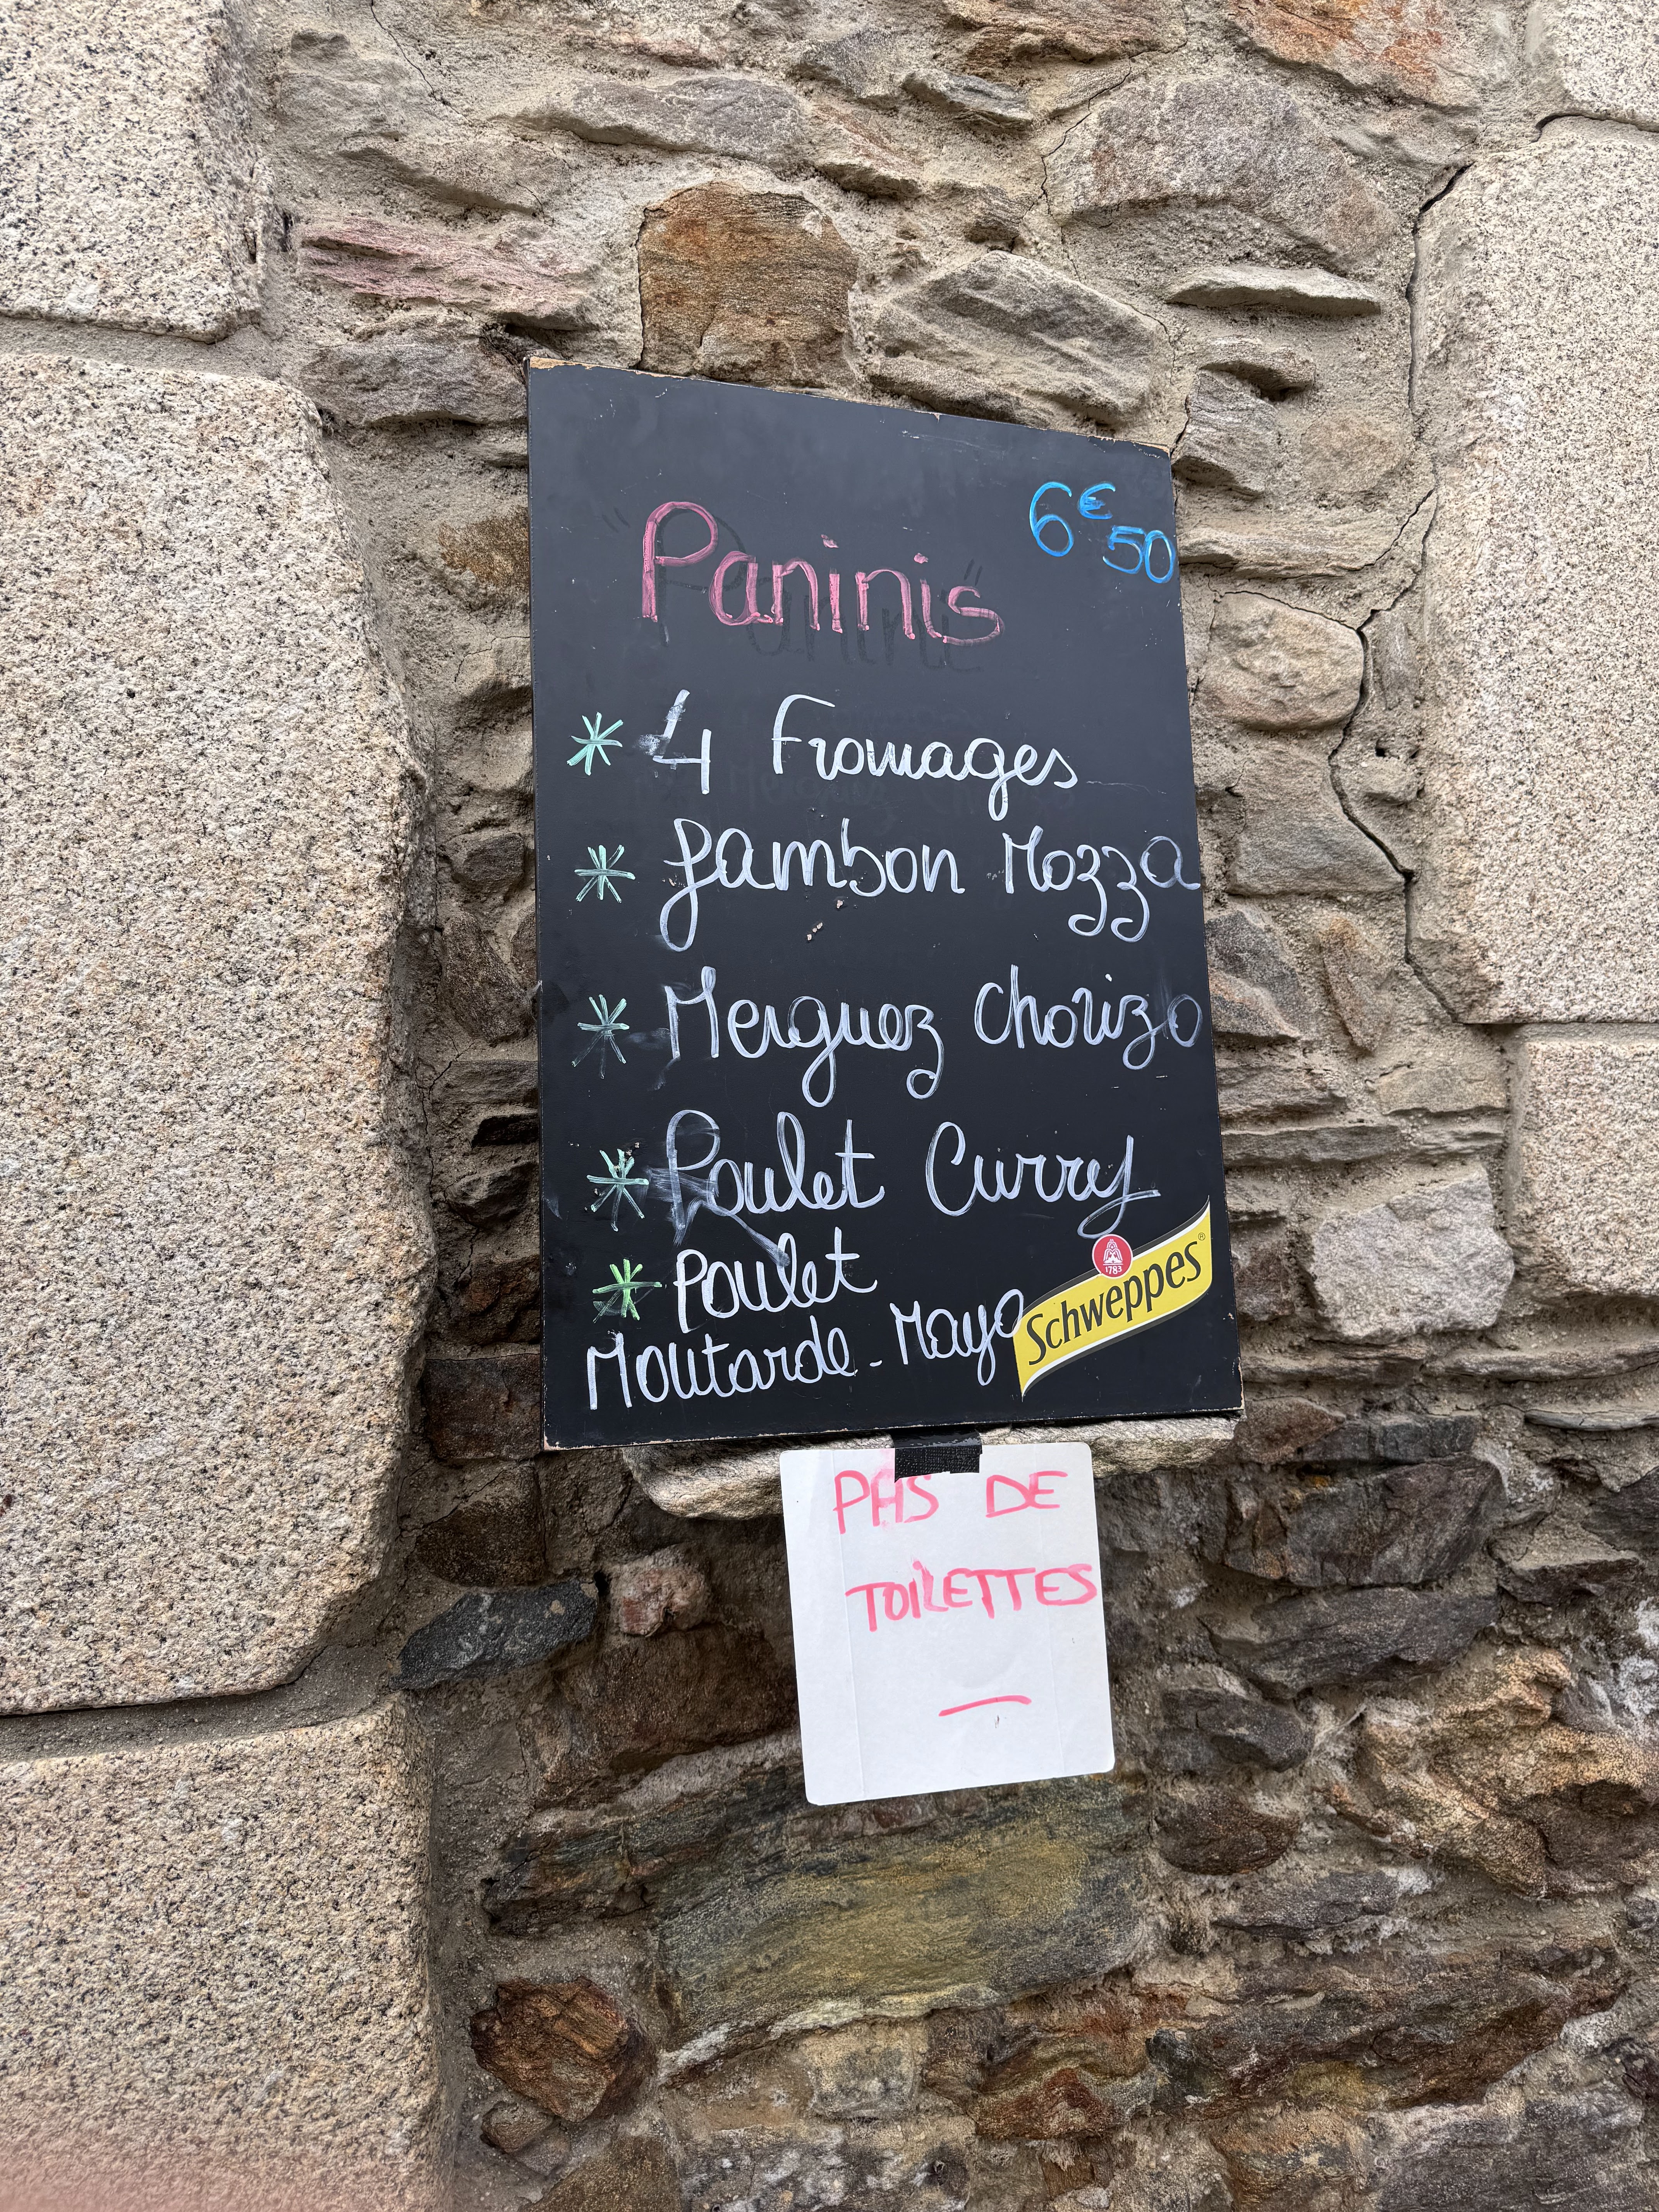 6€50
Paninis
* 4 Fromages
* Jambon Mozza
* Merguez chorizo
* Poulet Curry
* Poulet
Moutarde-Mayo
1783
Schweppes®
PAS DE
TOILETTES